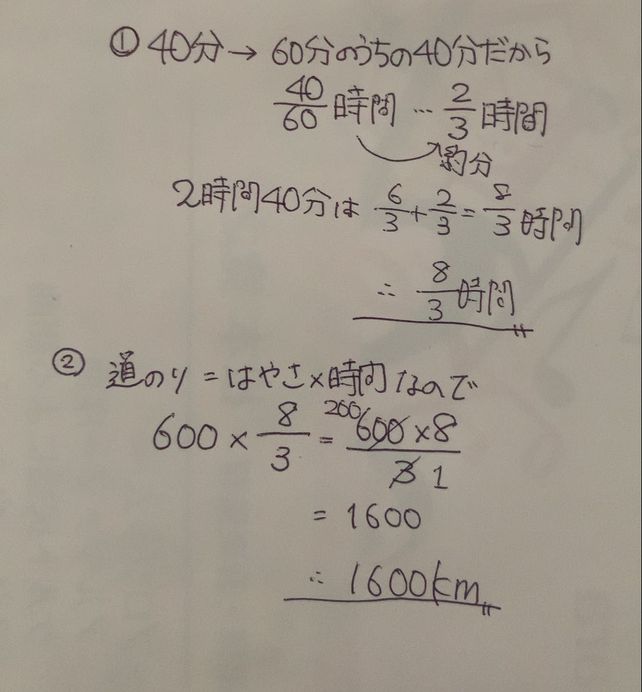 ① 40分→ 60分のうちの40分だから
40/60 時間 … 2/3 時間
約分
2時間40分は 6/3 + 2/3 = 8/3 時間
∴ 8/3 時間
② 道のり=はやさ×時間なので
600 × 8/3 = 200 600×8/3 1
= 1600
∴ 1600km